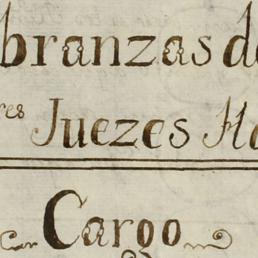 branzas de
res Juezes Ha
Cargo